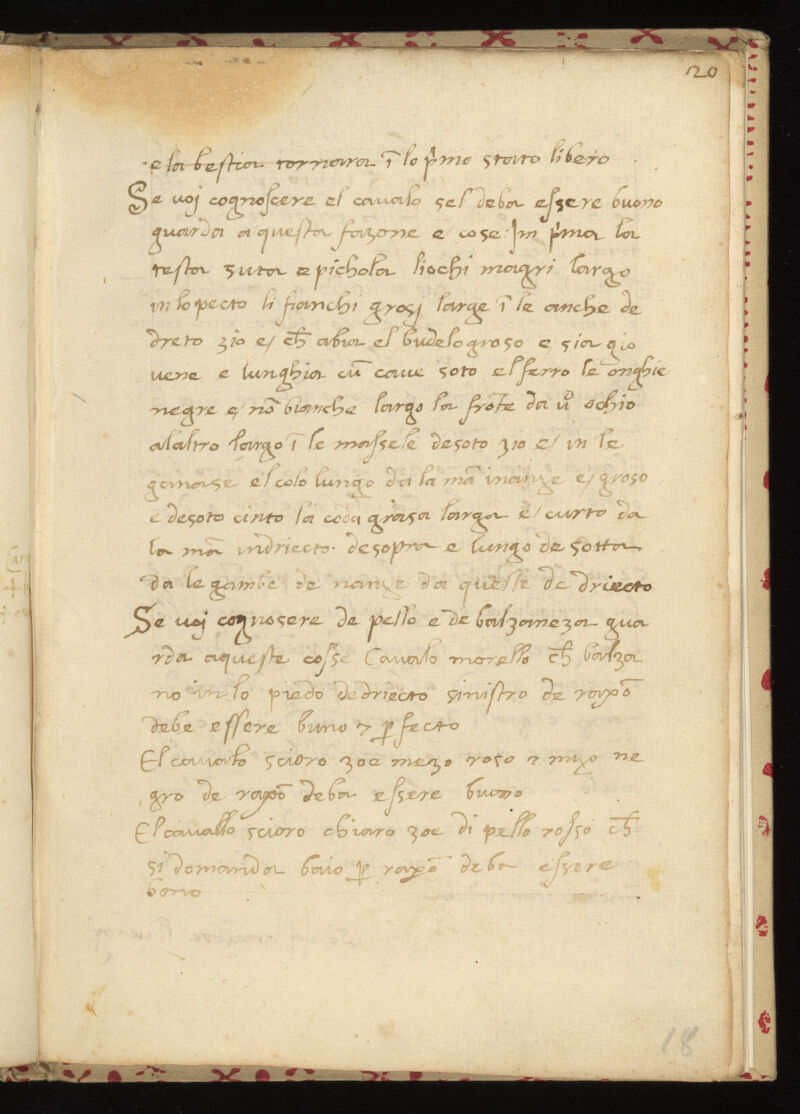 20
e la bestia tornara ī lo p̄mo stato libero
Se uoj cognoscere el cauałο sel deba essere buono
guarda a questa fazone e cose: Im p̄ma la
testa suta e pichola liochi magri largo
in lo pecto li fianchi grosj large ī le anche de
dreto zio e/ ch̄ abia el budelo groso e sia gio
uene e lunghia cū caue soto el ferro le onghie
negre e/ nō bianche largo la frōte da uº ochio
alaltro largo ī le massele desoto zio e/ in le
ganase el colo lungo da la mā inanze e/ groso
e desoto cinto la coda grasa larga e/ curto da
la mā indriecto desopra e lungo de sotta
da le gambe de nanze da quelle de driecto
Se uoj cognosere de pello e de balzaneza gua
rda aqueste cosse Cauało morello ch̄ balza
no in lo piedo dedriecto sinistro de raxō
debe essere buno ⁊ ꝑfecto
El cauało scioro zoe mezo roso ⁊ mezo ne
gro de raxō deba essere buono
El cavallo scioro chiaro zoe di pello rosso ch̄
si domanda baio ꝑ raxō deba essere
bono
18